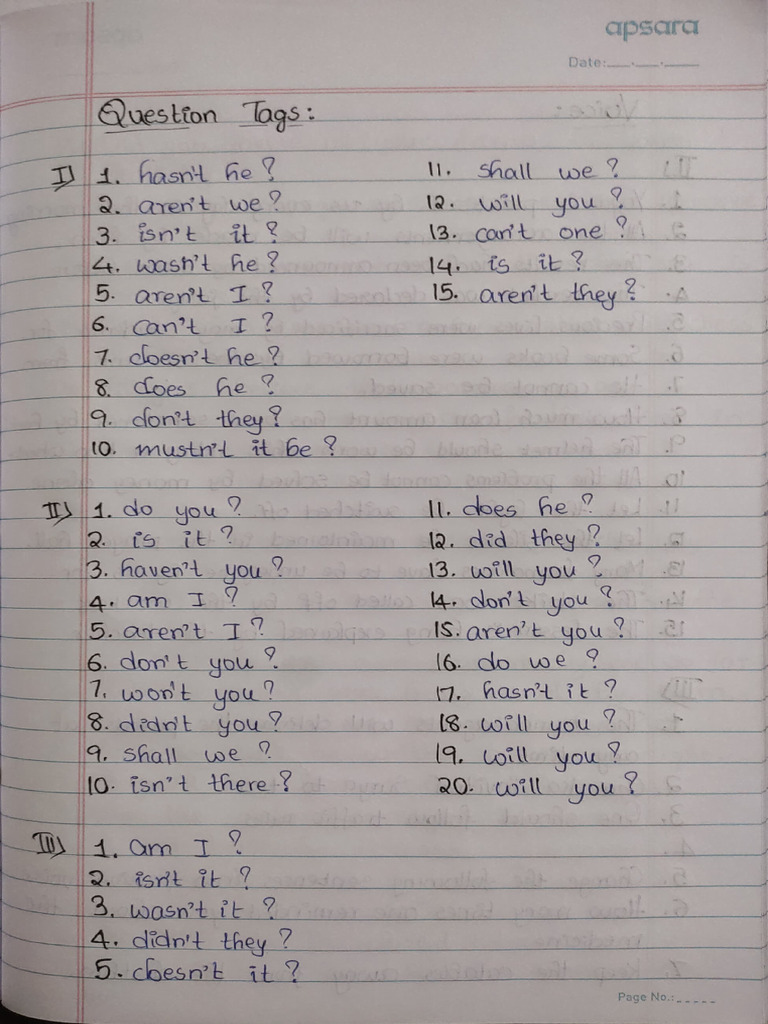 apsara
Date:__.__.__
Question Tags:
I) 1. hasn't he?
2. aren't we?
3. isn't it?
4. wasn't he?
5. aren't I?
6. can't I?
7. doesn't he?
8. does he?
9. don't they?
10. mustn't it be?
11. shall we?
12. will you?
13. can't one?
14. is it?
15. aren't they?
II) 1. do you?
2. is it?
3. haven't you?
4. am I?
5. aren't I?
6. don't you?
7. won't you?
8. didn't you?
9. shall we?
10. isn't there?
11. does he?
12. did they?
13. will you?
14. don't you?
15. aren't you?
16. do we?
17. hasn't it?
18. will you?
19. will you?
20. will you?
III) 1. am I?
2. isn't it?
3. wasn't it?
4. didn't they?
5. doesn't it?
Page No.:_____